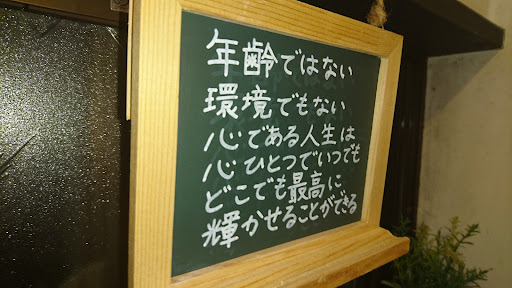 年齢ではない
環境でもない
心である人生は
心ひとつでいつでも
どこでも最高に
輝かせることができる